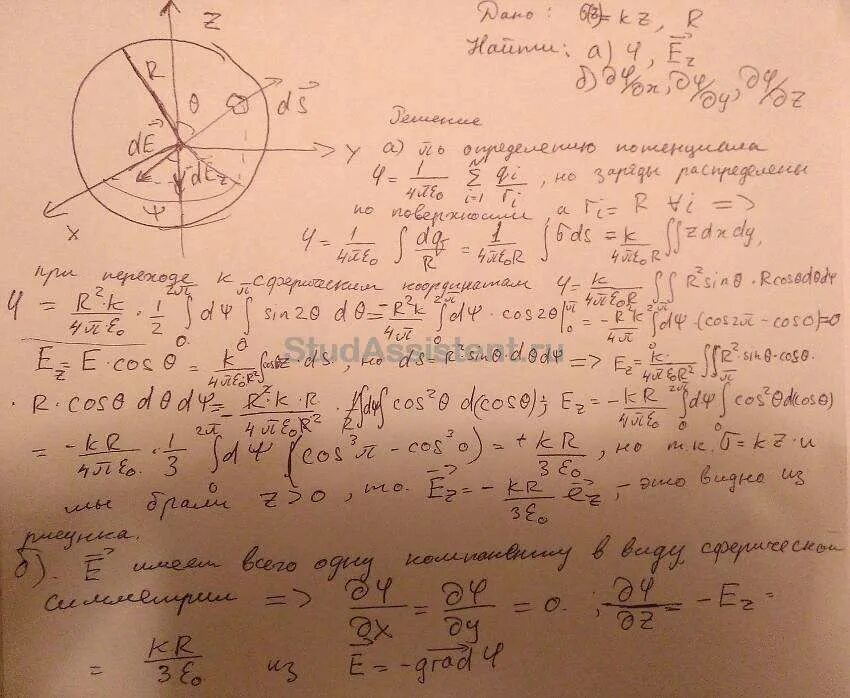 Дано: σ(z) = kz, R
Найти: а) φ, E⃗z
б) ∂φ/∂x, ∂φ/∂y, ∂φ/∂z
Z
R
θ
dS⃗
dE⃗
dE⃗z
Y
ψ
X
Решение
а) по определению потенциала
φ = 1/4πε₀ Σ(i=1..N) qi/ri, но заряды распределены
по поверхности, а ri = R ∀i =>
φ = 1/4πε₀ ∫ dq/R = 1/4πε₀R ∫ σds = k/4πε₀R ∬ zdxdy,
при переходе к сферическим координатам φ = k/4πε₀R ∬ R² sinθ · Rcosθdθdψ
φ = R²·k/4πε₀ · 1/2 ∫₀^2π dψ ∫₀^π sin2θ dθ = -R²k/4π ∫₀^2π dψ · cos2θ|₀^π = -R²k/4π ∫₀^2π dψ · (cos2π - cos0) = 0
StudAssistant.ru
Ez = E · cosθ = k/4πε₀R² ∫cosθz · ds, но ds = R² sinθ · dθdψ => Ez = k/4πε₀R² ∬ R² · sinθ · cosθ ·
· R · cosθ dθdψ = -R²·k·R/4πε₀R² · ∫dψ∫ cos²θ d(cosθ); Ez = -kR/4πε₀ ∫₀^2π dψ ∫₀^π cos²θd(cosθ)
= -kR/4πε₀ · 1/3 ∫₀^2π dψ (cos³π - cos³0) = + kR/3ε₀, но т.к. σ = kz и
мы брали z > 0, то E⃗z = - kR/3ε₀ e⃗z, - это видно из
рисунка.
б). E⃗ имеет всего одну компоненту в виду сферической
симметрии => ∂φ/∂x = ∂φ/∂y = 0. ; ∂φ/∂z = -Ez =
= kR/3ε₀ из E⃗ = -grad φ